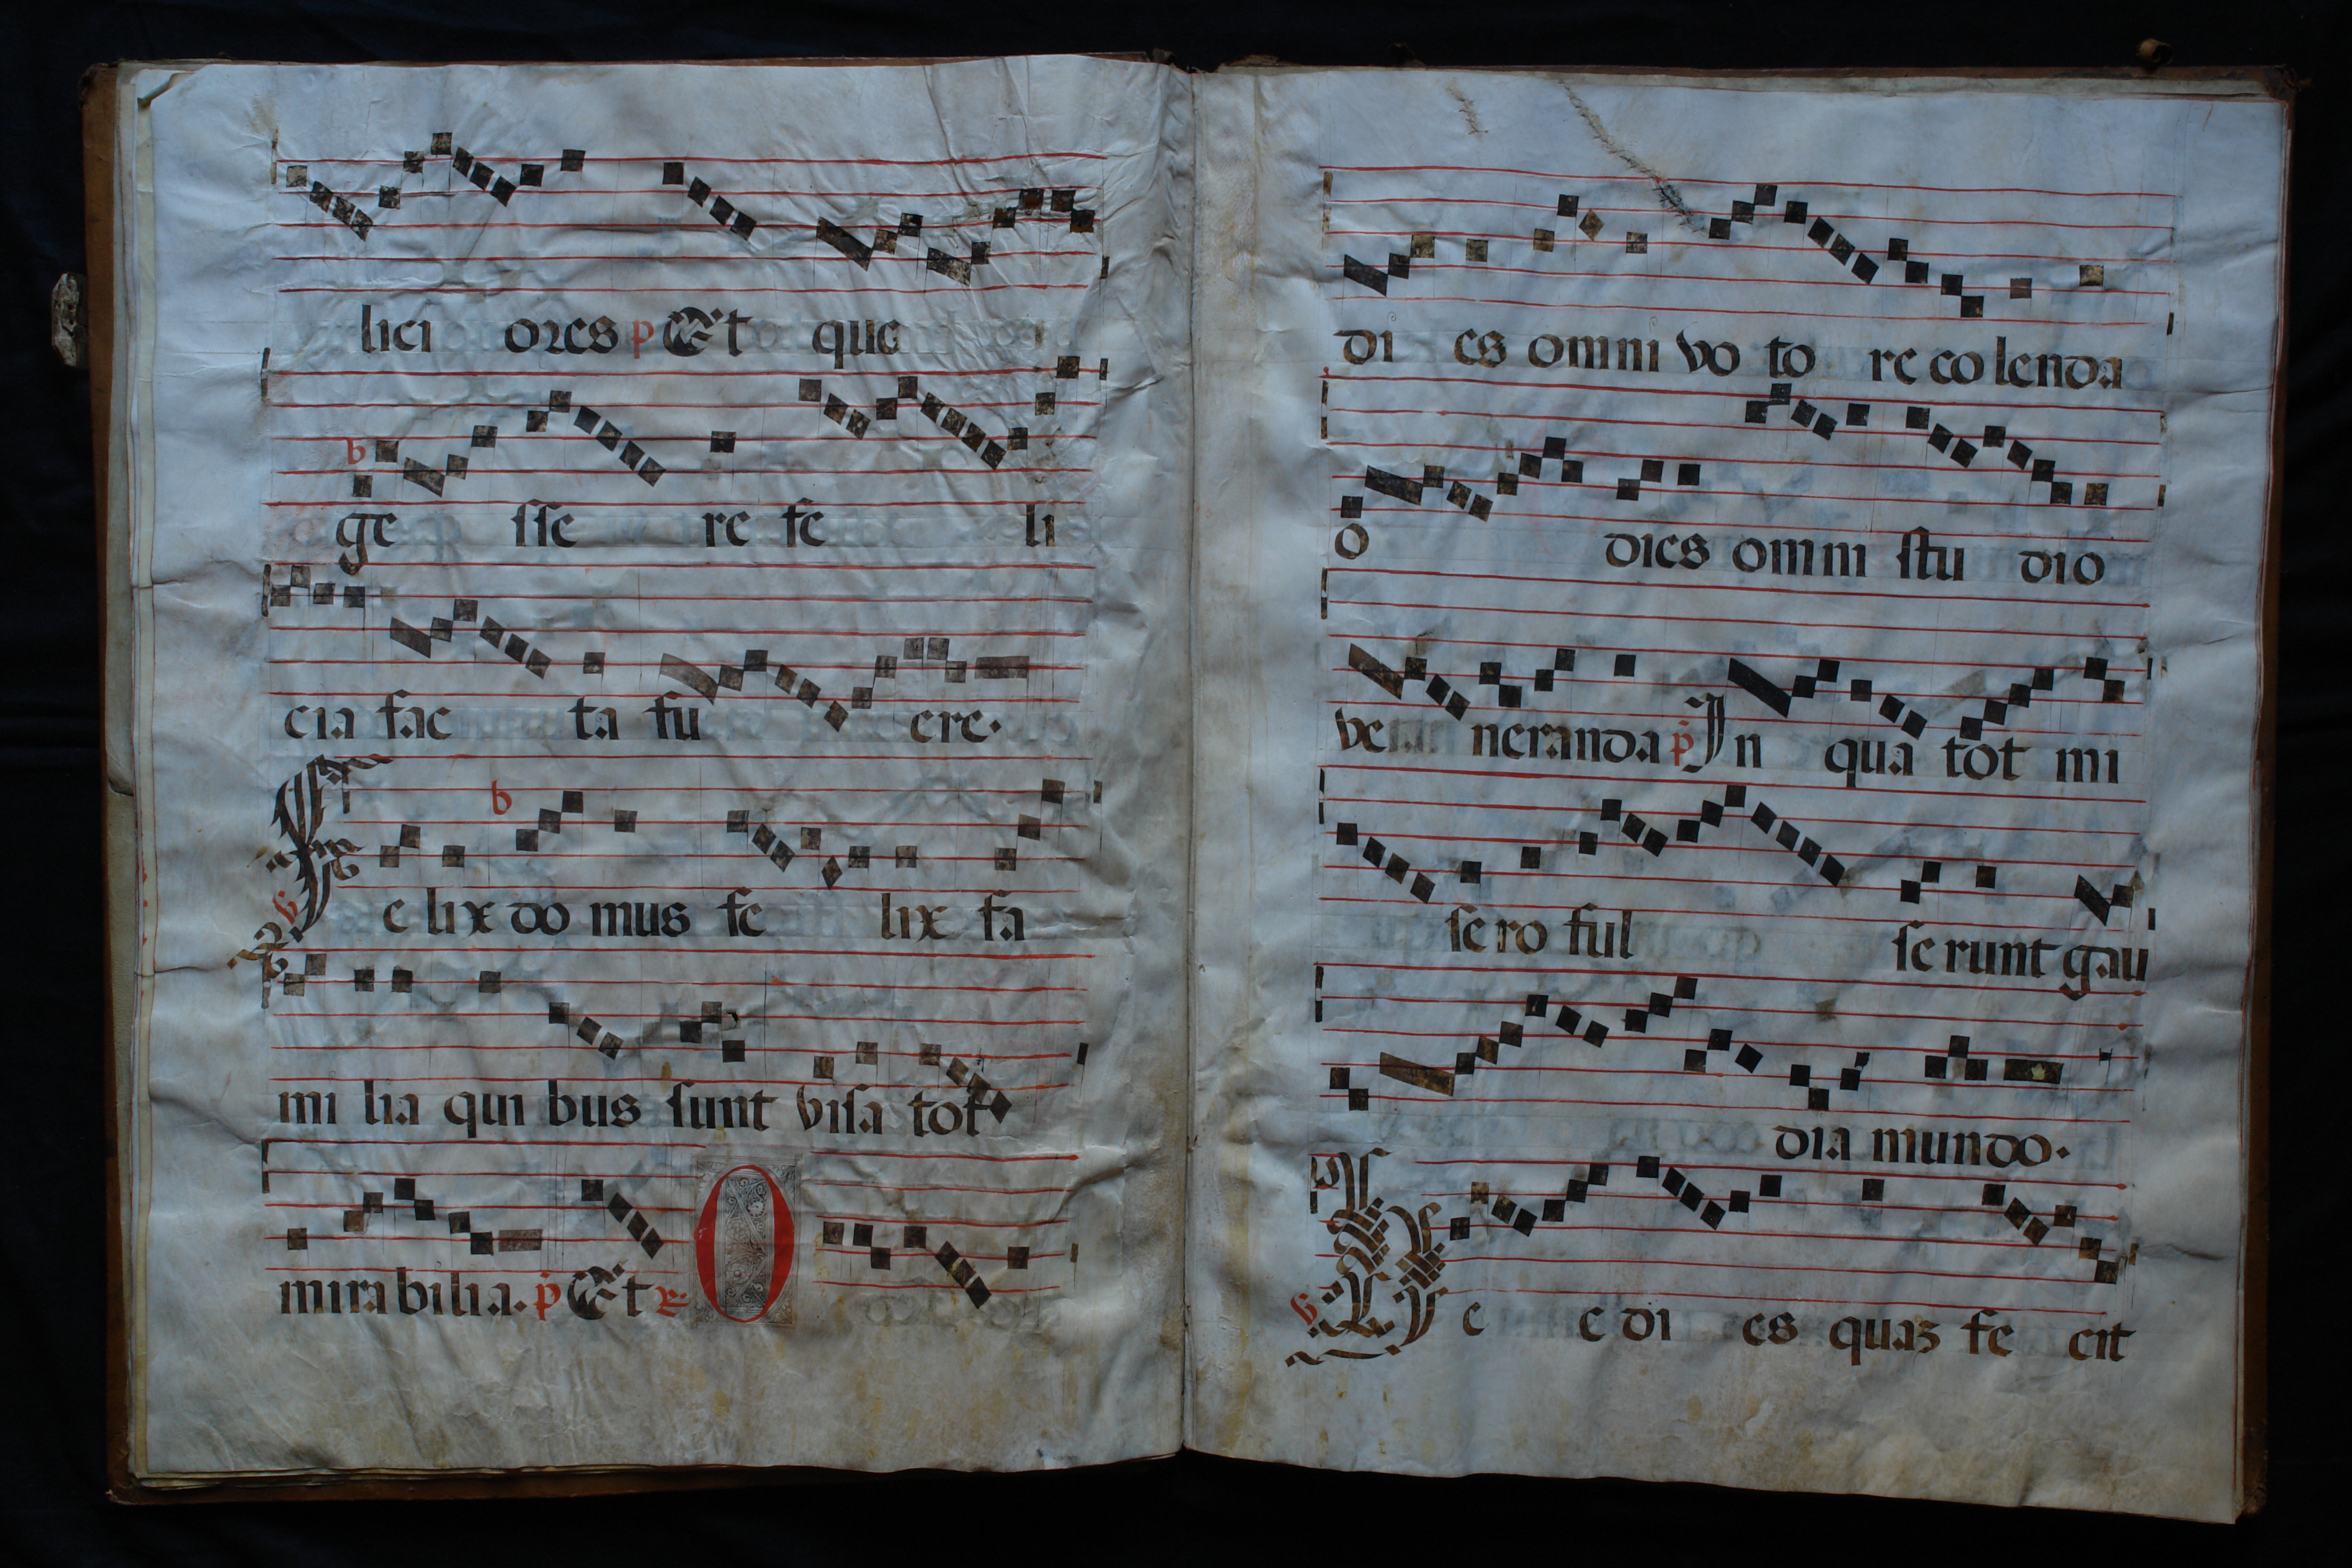 lici ores p Et que
ge sse re fe li
cia fac ta fu ere.
Fe lix do mus fe lix fa
mi lia qui bus sunt visa tot
mirabilia. p Et R O
di es omni vo to re co lenda
O dies omni stu dio
ve neranda p In qua tot mi
se ro ful se runt gau
dia mundo.
V Ec c e di es quaz fe cit